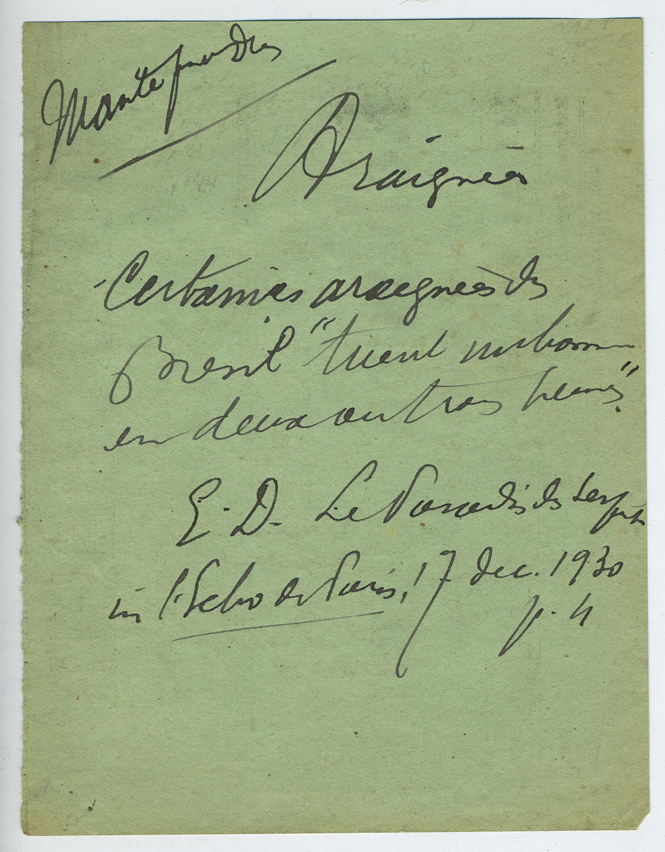 Mante
Araignées
Certaines araignées du
Brésil "tuent un homme
en deux ou trois heures".
E. D. Le Paradis des Serpents
in l'Echo de Paris, 17 dec. 1930
p. 4